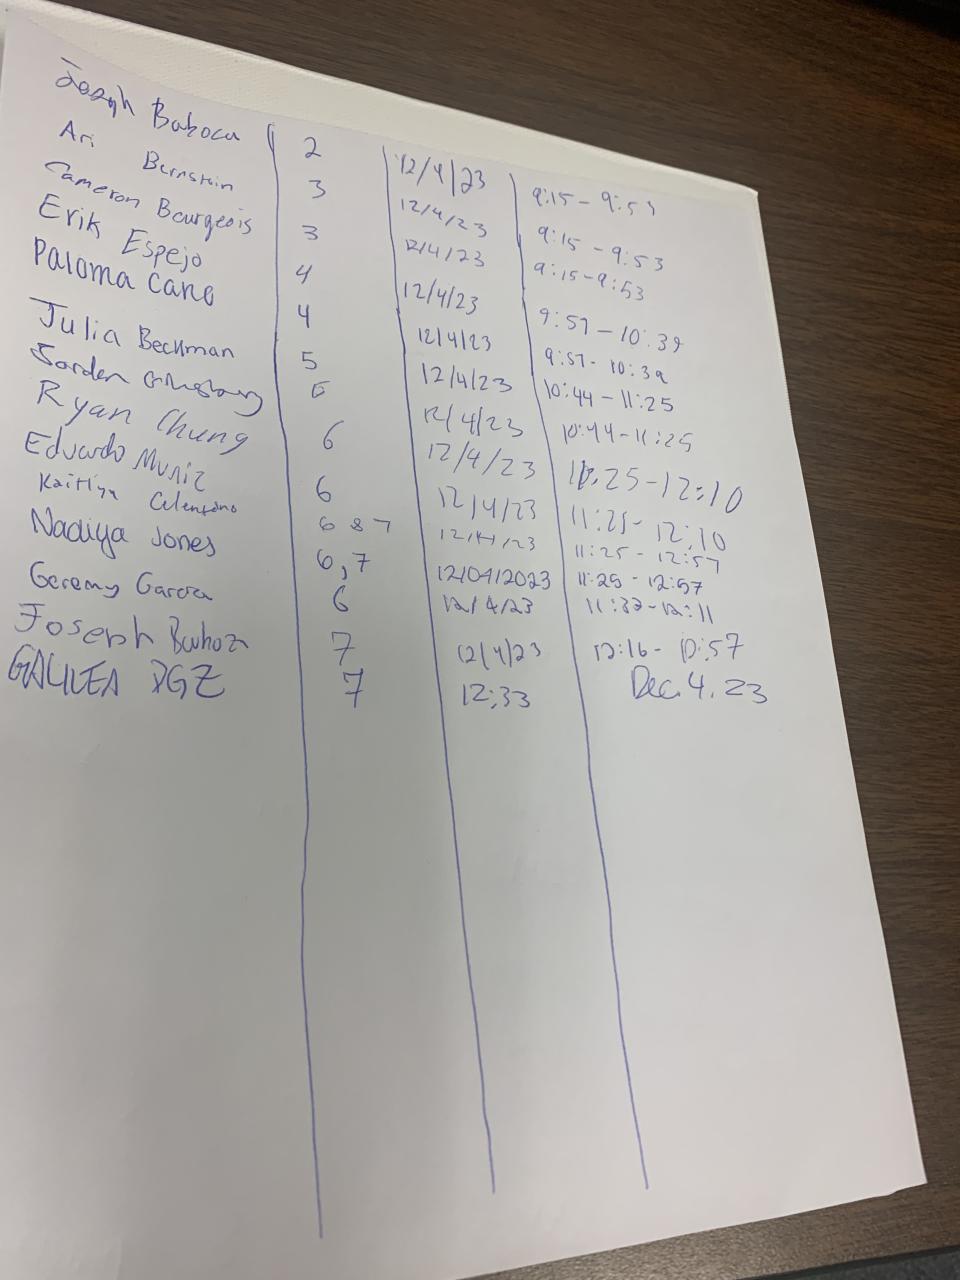 Joseph Bahoca 2 12/4/23 9:15 - 9:53
Ari Bernstein 3 12/4/23 9:15 - 9:53
Cameron Bourgeois 3 12/4/23 9:15-9:53
Erik Espejo 4 12/4/23 9:57 - 10:39
Paloma Cano 4 12/4/23 9:57- 10:39
Julia Beckman 5 12/4/23 10:44 - 11:25
Jorden 5 12/4/23 10:44-11:25
Ryan Chung 6 12/4/23 11:25-12:10
Eduardo Muniz 6 12/4/23 11:25- 12:10
Kaitlyn Celentano 6 & 7 12/4/23 11:25 - 12:57
Nadiya Jones 6,7 12/04/2023 11:25 - 12:57
Geremy Garcia 6 12/4/23 11:32-12:11
Joseph 7 12/4/23 12:16- 12:57
GALILEA DGZ 7 12:33 Dec. 4. 23